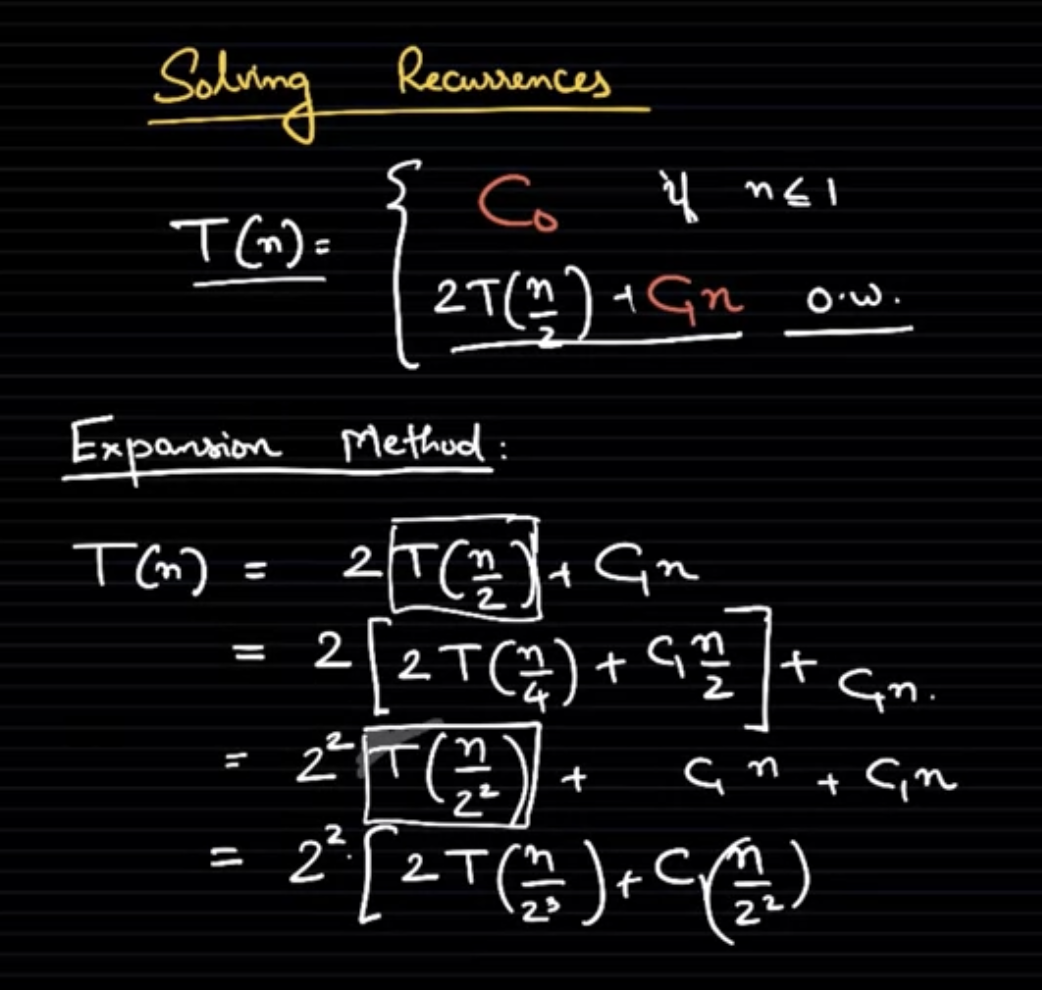 Solving Recurrences
T(n) = { C₀ if n ≤ 1
2T(n/2) + C₁n o.w.
Expansion Method:
T(n) = 2 T(n/2) + C₁n
= 2 [ 2T(n/4) + C₁ n/2 ] + C₁n.
= 2² T(n/2²) + C₁n + C₁n
= 2². [ 2T(n/2³) + C₁(n/2²)